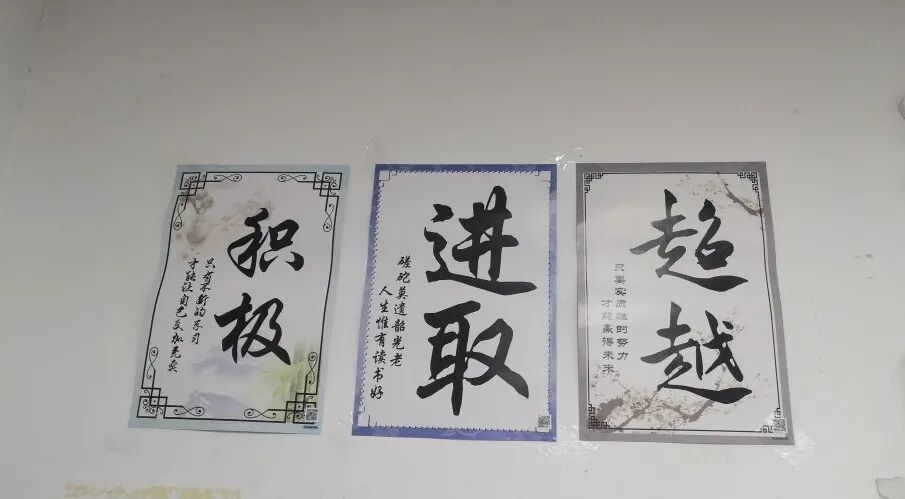 积极
只有不断的学习
才能让自己更加充实
进取
磋砣莫遗韶光老
人生惟有读书好
超越
只要实质性的努力
才能赢得未来